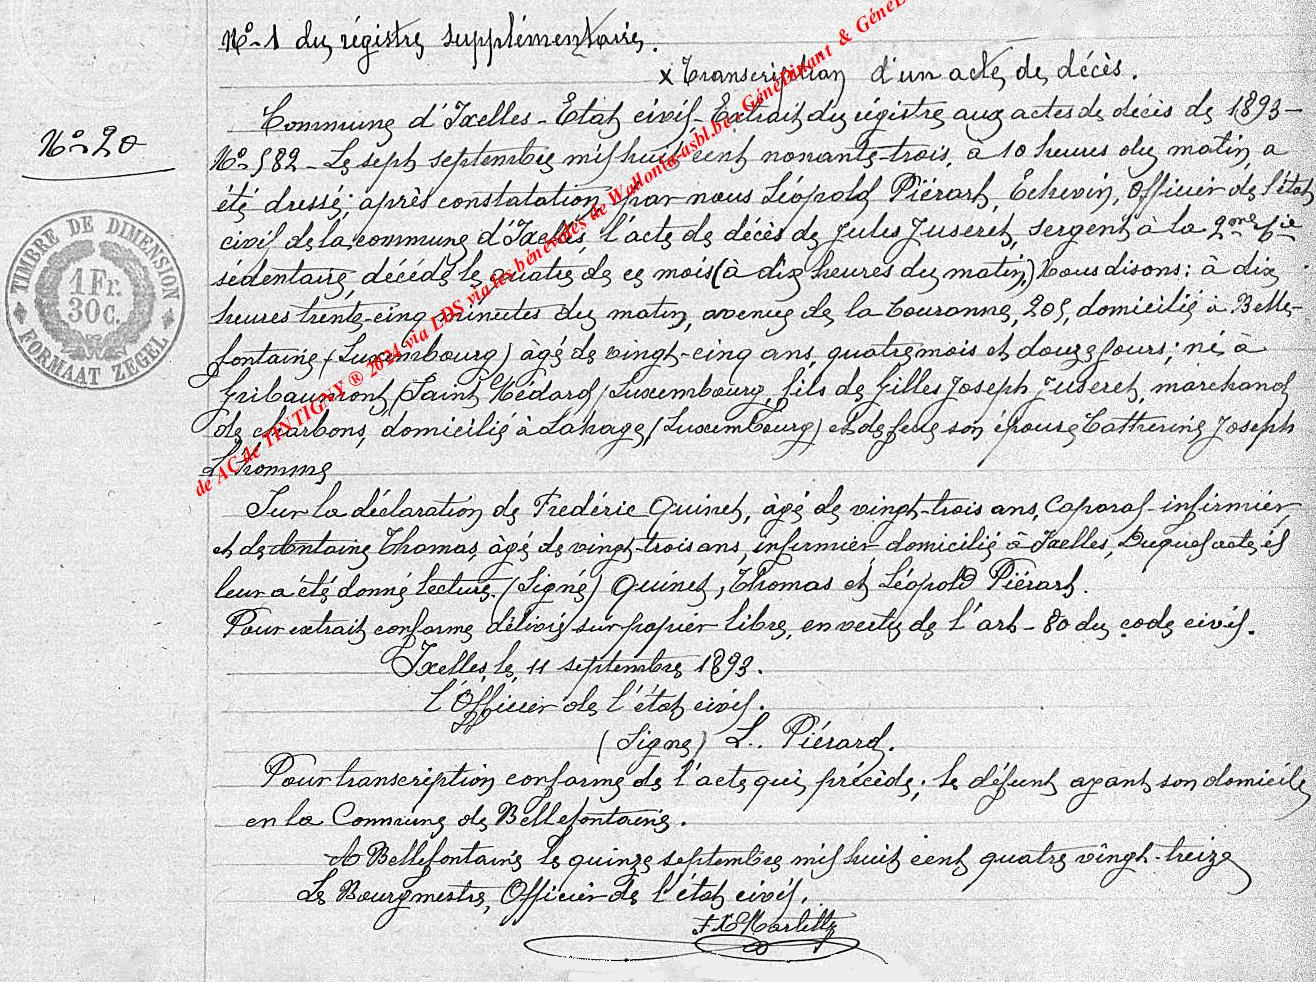 No 1 du régistre supplémentaire.
x Transcription d'un acte de décès.
No 20
Commune d'Ixelles - Etat civil - Extrait du régistre aux actes de décès de 1893 -
No 582 - Le sept septembre mil huit cent nonante-trois, à 10 heures du matin, a
été dressé; après constatation par nous Léopold Piérart, Echevin, Officier de l'état
civil de la commune d'Ixelles l'acte de décès de Jules Juseret, sergent à la 2me Cie
sédentaire, décédé le quatre de ce mois (à dix heures du matin,) Nous disons: à dix
heures trente-cinq minutes du matin, avenue de la Couronne, 205, domicilié à Belle-
fontaine (Luxembourg) âgé de vingt-cinq ans, quatre mois et douze jours; né à
Gribaumont (Saint Médard) Luxembourg, fils de Gilles Joseph Juseret, marchand
de charbons, domicilié à Lahage, (Luxembourg) et de feue son épouse Catherine Joseph
Lhomme
Sur la déclaration de Frédéric Quinet, âgé de vingt-trois ans, Caporal-infirmier
et de Antoine Thomas, âgé de vingt-trois ans, infirmier domicilié à Ixelles, Duquel acte il
leur a été donné lecture. (Signé) Quinet, Thomas et Léopold Piérart.
Pour extrait conforme délivré sur papier libre, en vertu de l'art - 80 du code civil.
Ixelles, le, 11 septembre 1893.
l'Officier de l'état civil.
(Signé) L. Piérard.
Pour transcription conforme de l'acte qui précède; le défunt ayant son domicile
en la Commune de Bellefontaine.
A Bellefontaine le quinze septembre mil huit cent quatre vingt-treize
Le Bourgmestre, Officier de l'état civil.
TIMBRE DE DIMENSION
1 Fr.
30 c.
FORMAAT ZEGEL
de AC de TINTIGNY ® 2024 via LDS via les bénévoles de Wallonia-asbl.be, GénéDinant & GénéD